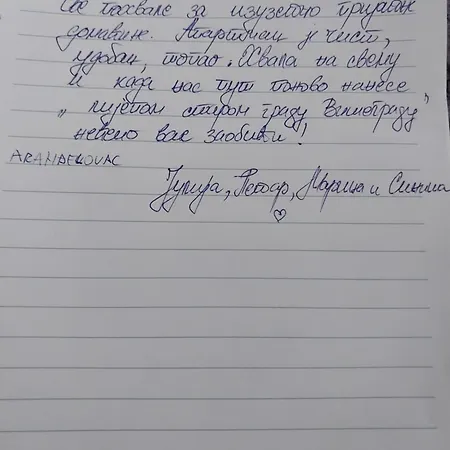 Све похвале за изузетно пријатан
домаћине. Апартман је чист,
удобан, топао. Хвала на свему
и када нас пут поново нанесе
„лијепом старом граду Вишеграду"
нећемо вас заобићи!
ARANĐELOVAC
Јулија, Петар, Марија и Синиша
♡